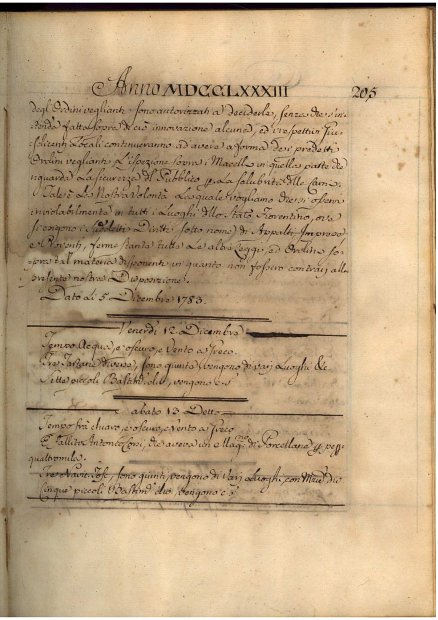 Anno MDCCLXXXIII 205
degl'Ordini veglianti sono autorizzati a deciderle, senza che s'in
tenda fatta sopra di ciò innovazione alcuna, ed i rispettivi Giu
sdicenti Locali continueranno ad avere a forma dei predetti
Ordini veglianti L'ispezione sopra i Macelli in quella parte che
riguarda La sicurezza del Pubblico p. La salubrità delle Carni.
Tale è La Nostra Volontà, La quale vogliamo che si osservi
inviolabilmente in tutti i Luoghi dello Stato Fiorentino, ove
si esigono i Diritti sotto nome di Appalti
e Proventi, ferme stanti tutte Le altre Leggi, ed Ordini so
pra tal materia disponenti in quanto non fossero contrarj alla
presente nostra Disposizione.
Dato li 5 Dicembre 1783.
Venerdì 12 Dicembre
Tempo Acqua, e oscuro, e Vento a Greco
Tre Tartane diverse, sono quinti vengono di varj Luoghi &c
Sette piccoli Bastim
Sabato 13 Detto
Tempo frà chiaro, e oscuro, e Vento a Greco
È fallito Antonio che aveva un Mag.º di Porcellane p. pezze
quattromila
Tre Navi sono quinti, vengono di Varj Luoghi, con
Cinque piccoli Bastim vengono